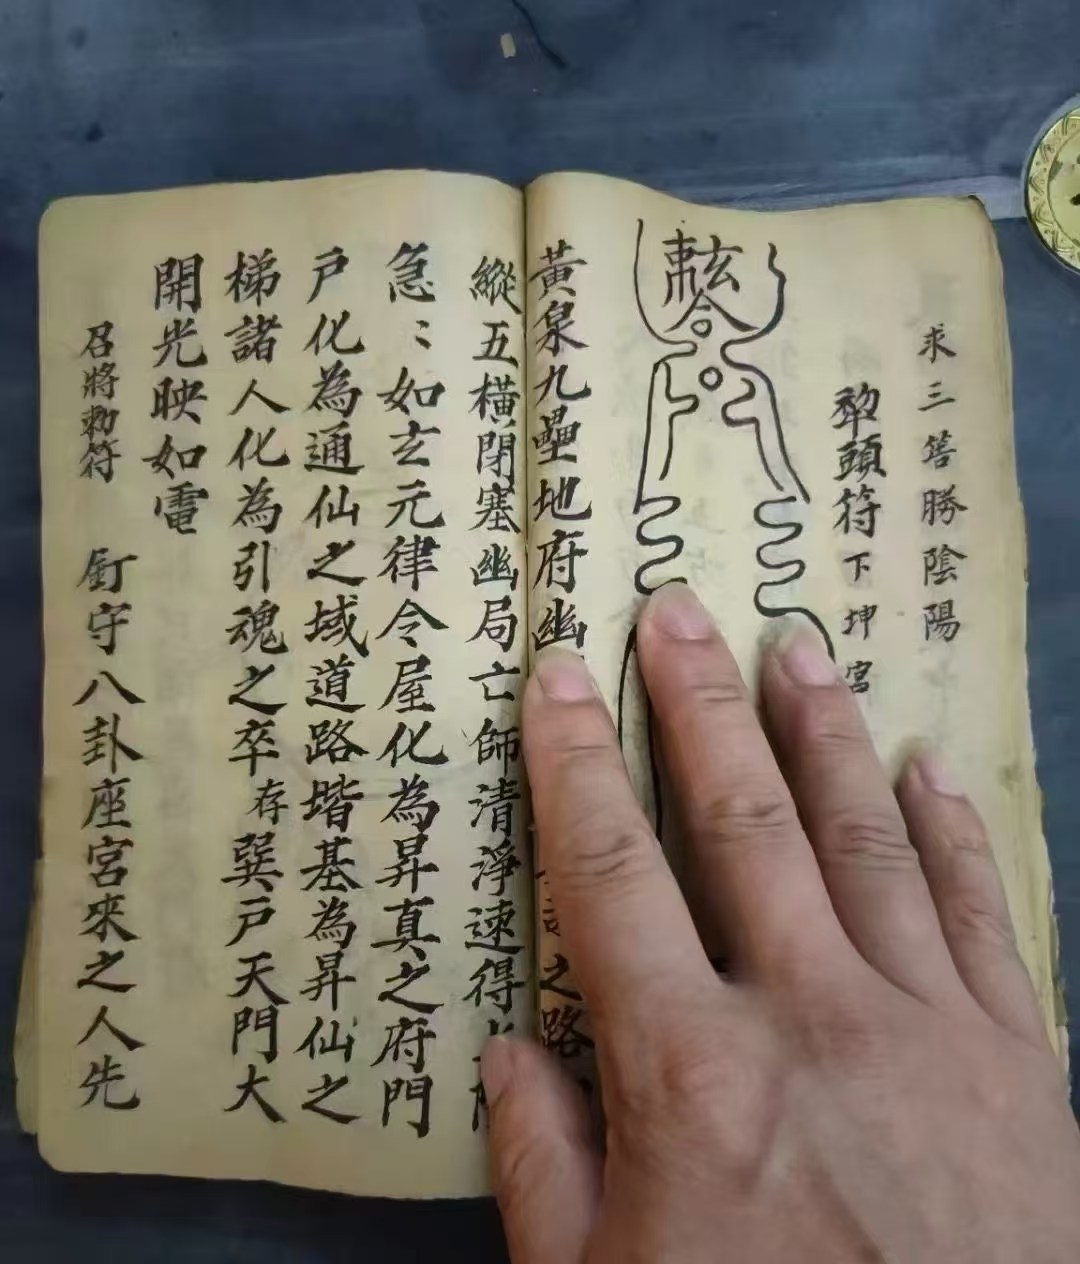 求三筶勝陰陽
犂頭符下坤宮
黃泉九壘地府幽之路
縱五橫閉塞幽局亡師清淨速得
急〻如玄元律令屋化為昇真之府門
戶化為通仙之域道路堦基為昇仙之
梯諸人化為引魂之卒存巽戶天門大
開光映如電
召將勅符 釘守八卦座宮來之人先